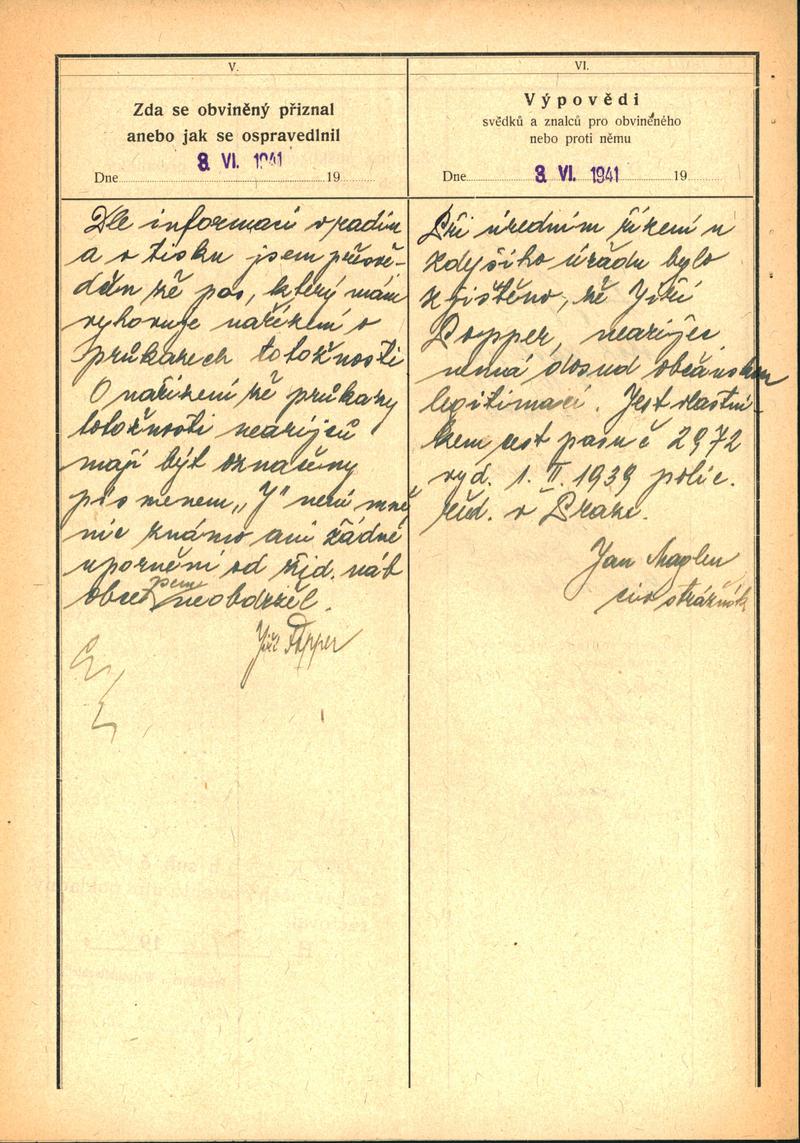 V.
Zda se obviněný přiznal
anebo jak se ospravedlnil
Dne 8 VI. 1941 19
Dle informací v radiu
a v tisku jsem přesvě-
dčen že pas, který mám
vyhovuje nařízení o
průkazech totožnosti
O nařízení že průkazy
totožnosti nearijců
mají být označeny
písmenem „J" není mně
nic známo ani žádné
upornění od žid. náb
obce jsem neobdržel.
Jiří Popper
VI.
Výpovědi
svědků a znalců pro obviněného
nebo proti němu
Dne 8 VI. 1941 19
Při úředním řízení u
zdejšího úřadu bylo
zjištěno, že Jiří
Popper, nearijec
nemá dosud občanskou
legitimaci. Jest vlastní-
kem cest pasu č 2972
vyd. 1. II. 1939 polic.
řed. v Praze.
Jan
strážník